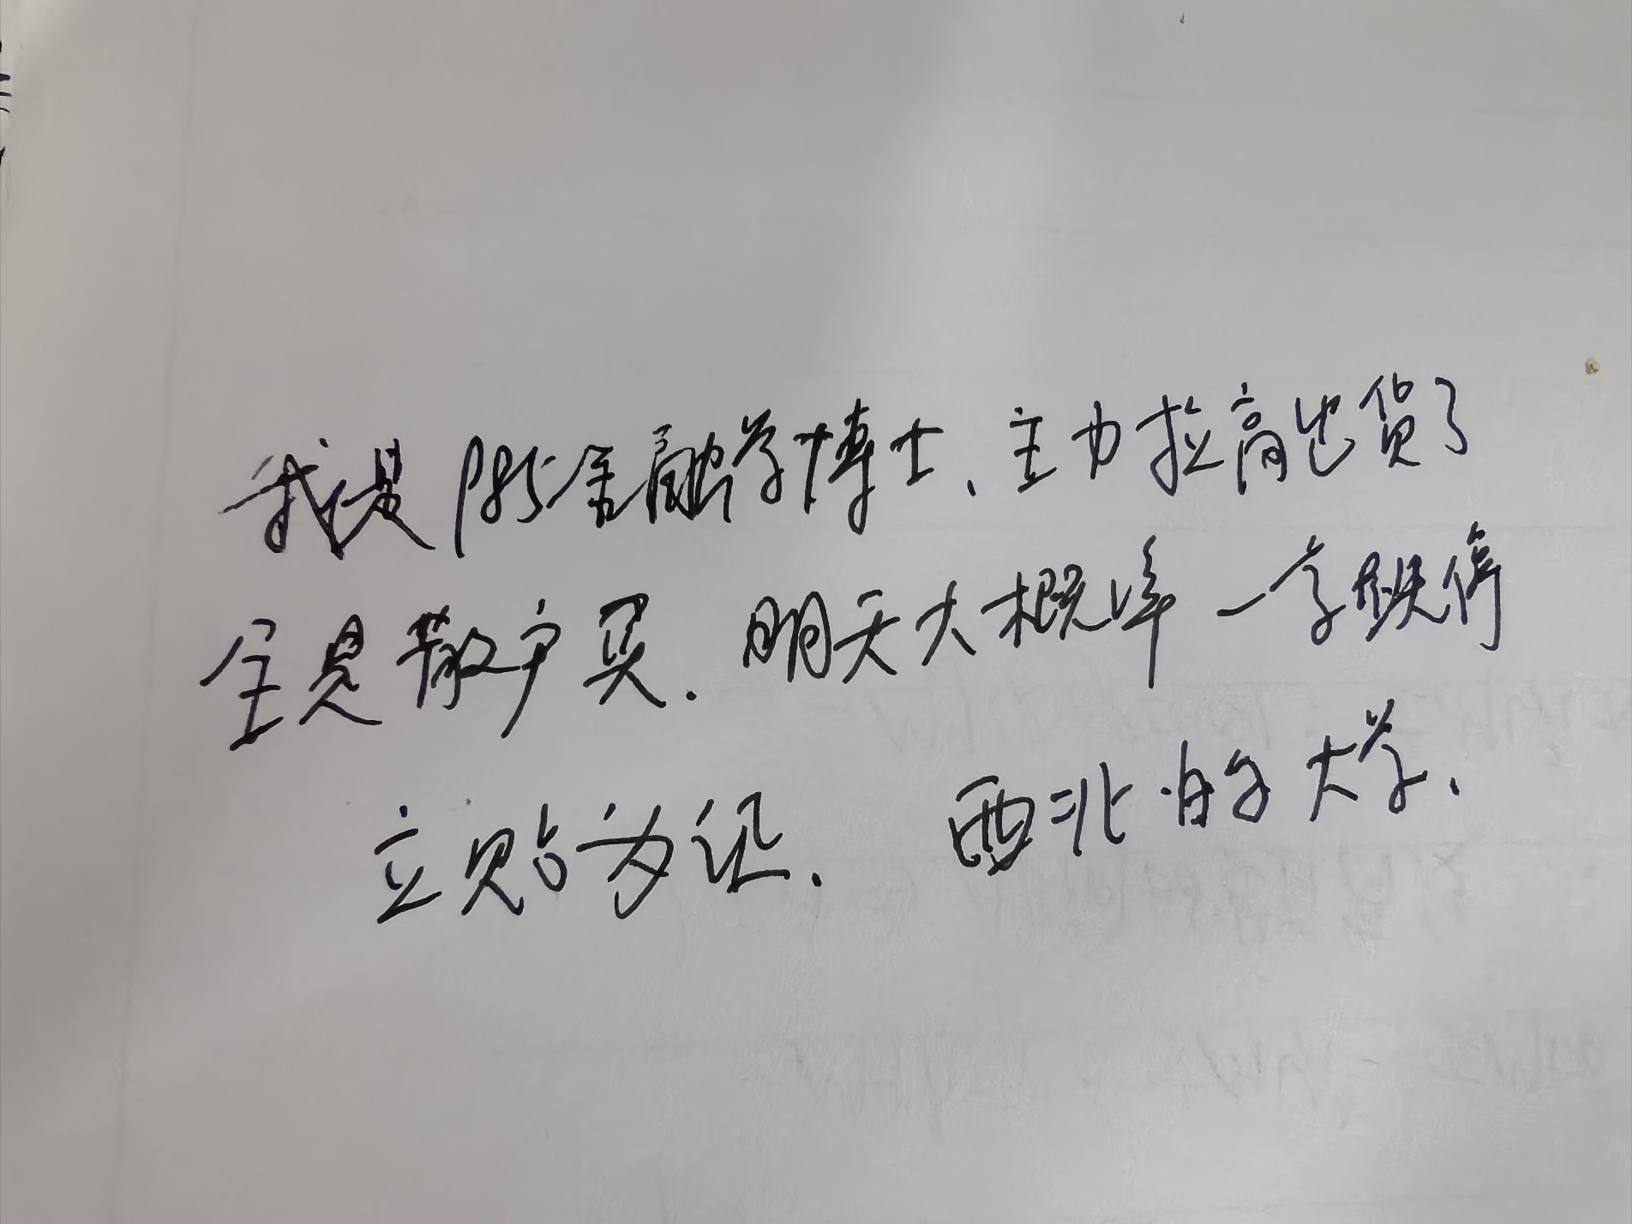 我是985金融学博士、主力拉高出货了
全是散户买.明天大概率一字跌停
立贴为证.西北的大学.